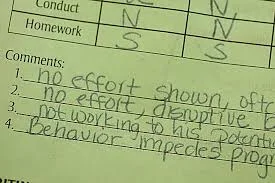 Conduct N N
Homework S S
Comments:
1. no effort shown, oft
2. no effort, disruptive
3. not working to his potenti
4. Behavior impedes progr